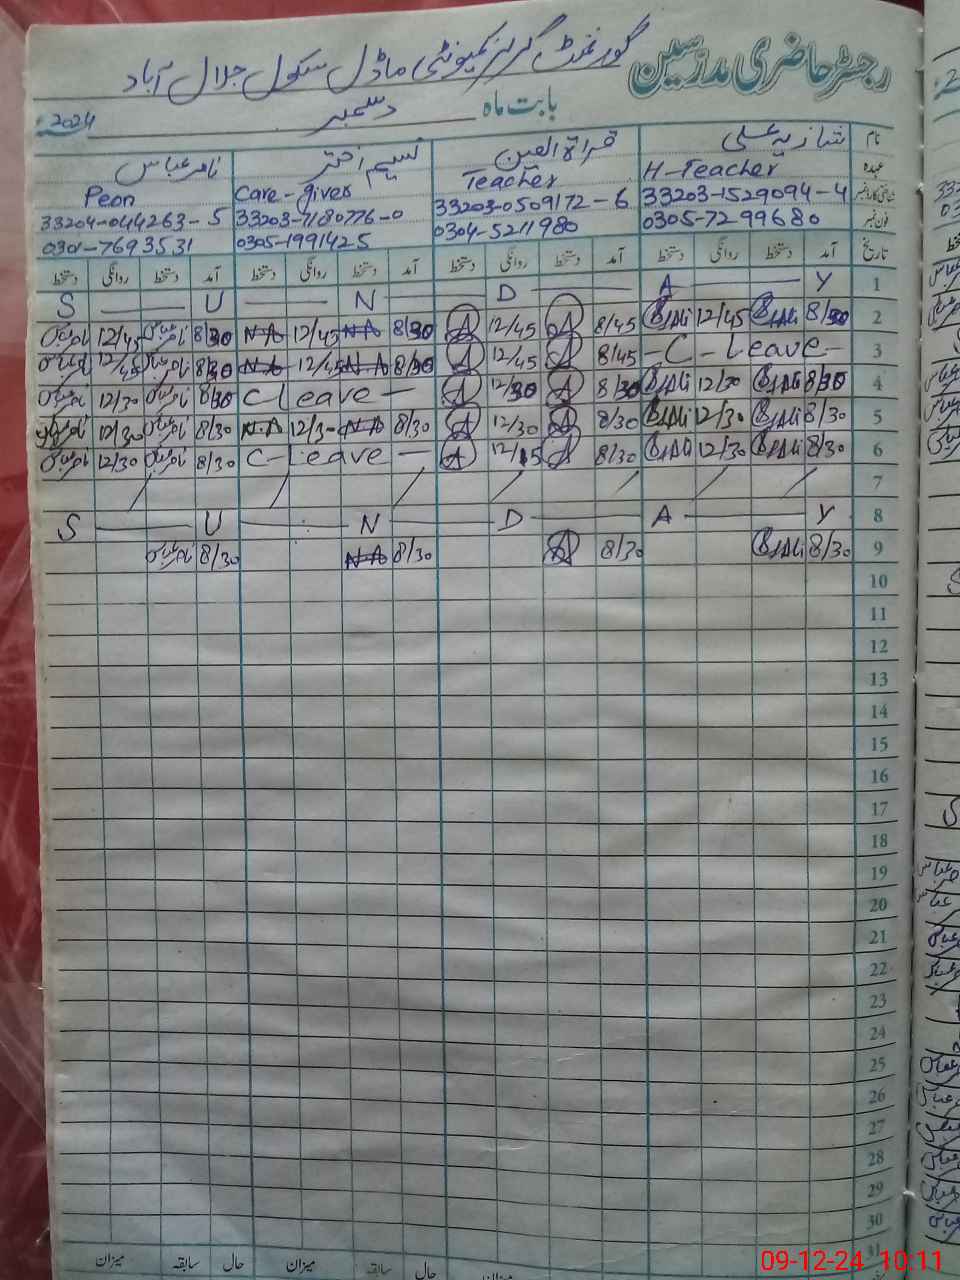 رجسٹر حاضری مدرسین گورنمنٹ گرلز کمیونٹی ماڈل سکول جلال آباد
بابت ماہ دسمبر 2024
نام شازیہ علی قراۃ العین نسیم اختر ناصر عباس
عہدہ H-Teacher Teacher Care-giver Peon
شناختی کارڈ نمبر 33203-1529094-4 33203-0509172-6 33203-7180776-0 33204-0414263-5
فون نمبر 0305-7299680 0304-5211980 0305-1991425 0301-7693531
تاریخ آمد دستخط روانگی دستخط آمد دستخط روانگی دستخط آمد دستخط روانگی دستخط آمد دستخط روانگی دستخط
1 S U N D A Y
2 8/30 12/45 8/45 12/45 8/30 N.A 12/45 N.A 8/30 12/45
3 C-Leave 8/45 12/45 8/30 N.A 12/45 N.A 8/30 12/45
4 8/30 12/30 8/30 12/30 C Leave 8/30 12/30
5 8/30 12/30 8/30 12/30 8/30 N.A 12/30 N.A 8/30 12/30
6 8/30 12/30 8/30 12/15 C-Leave 8/30 12/30
7
8 S U N D A Y
9 8/30 8/30 8/30 N.A 8/30
10
11
12
13
14
15
16
17
18
19
20
21
22
23
24
25
26
27
28
29
30
31
حال سابقہ میزان حال سابقہ میزان
09-12-24 10:11